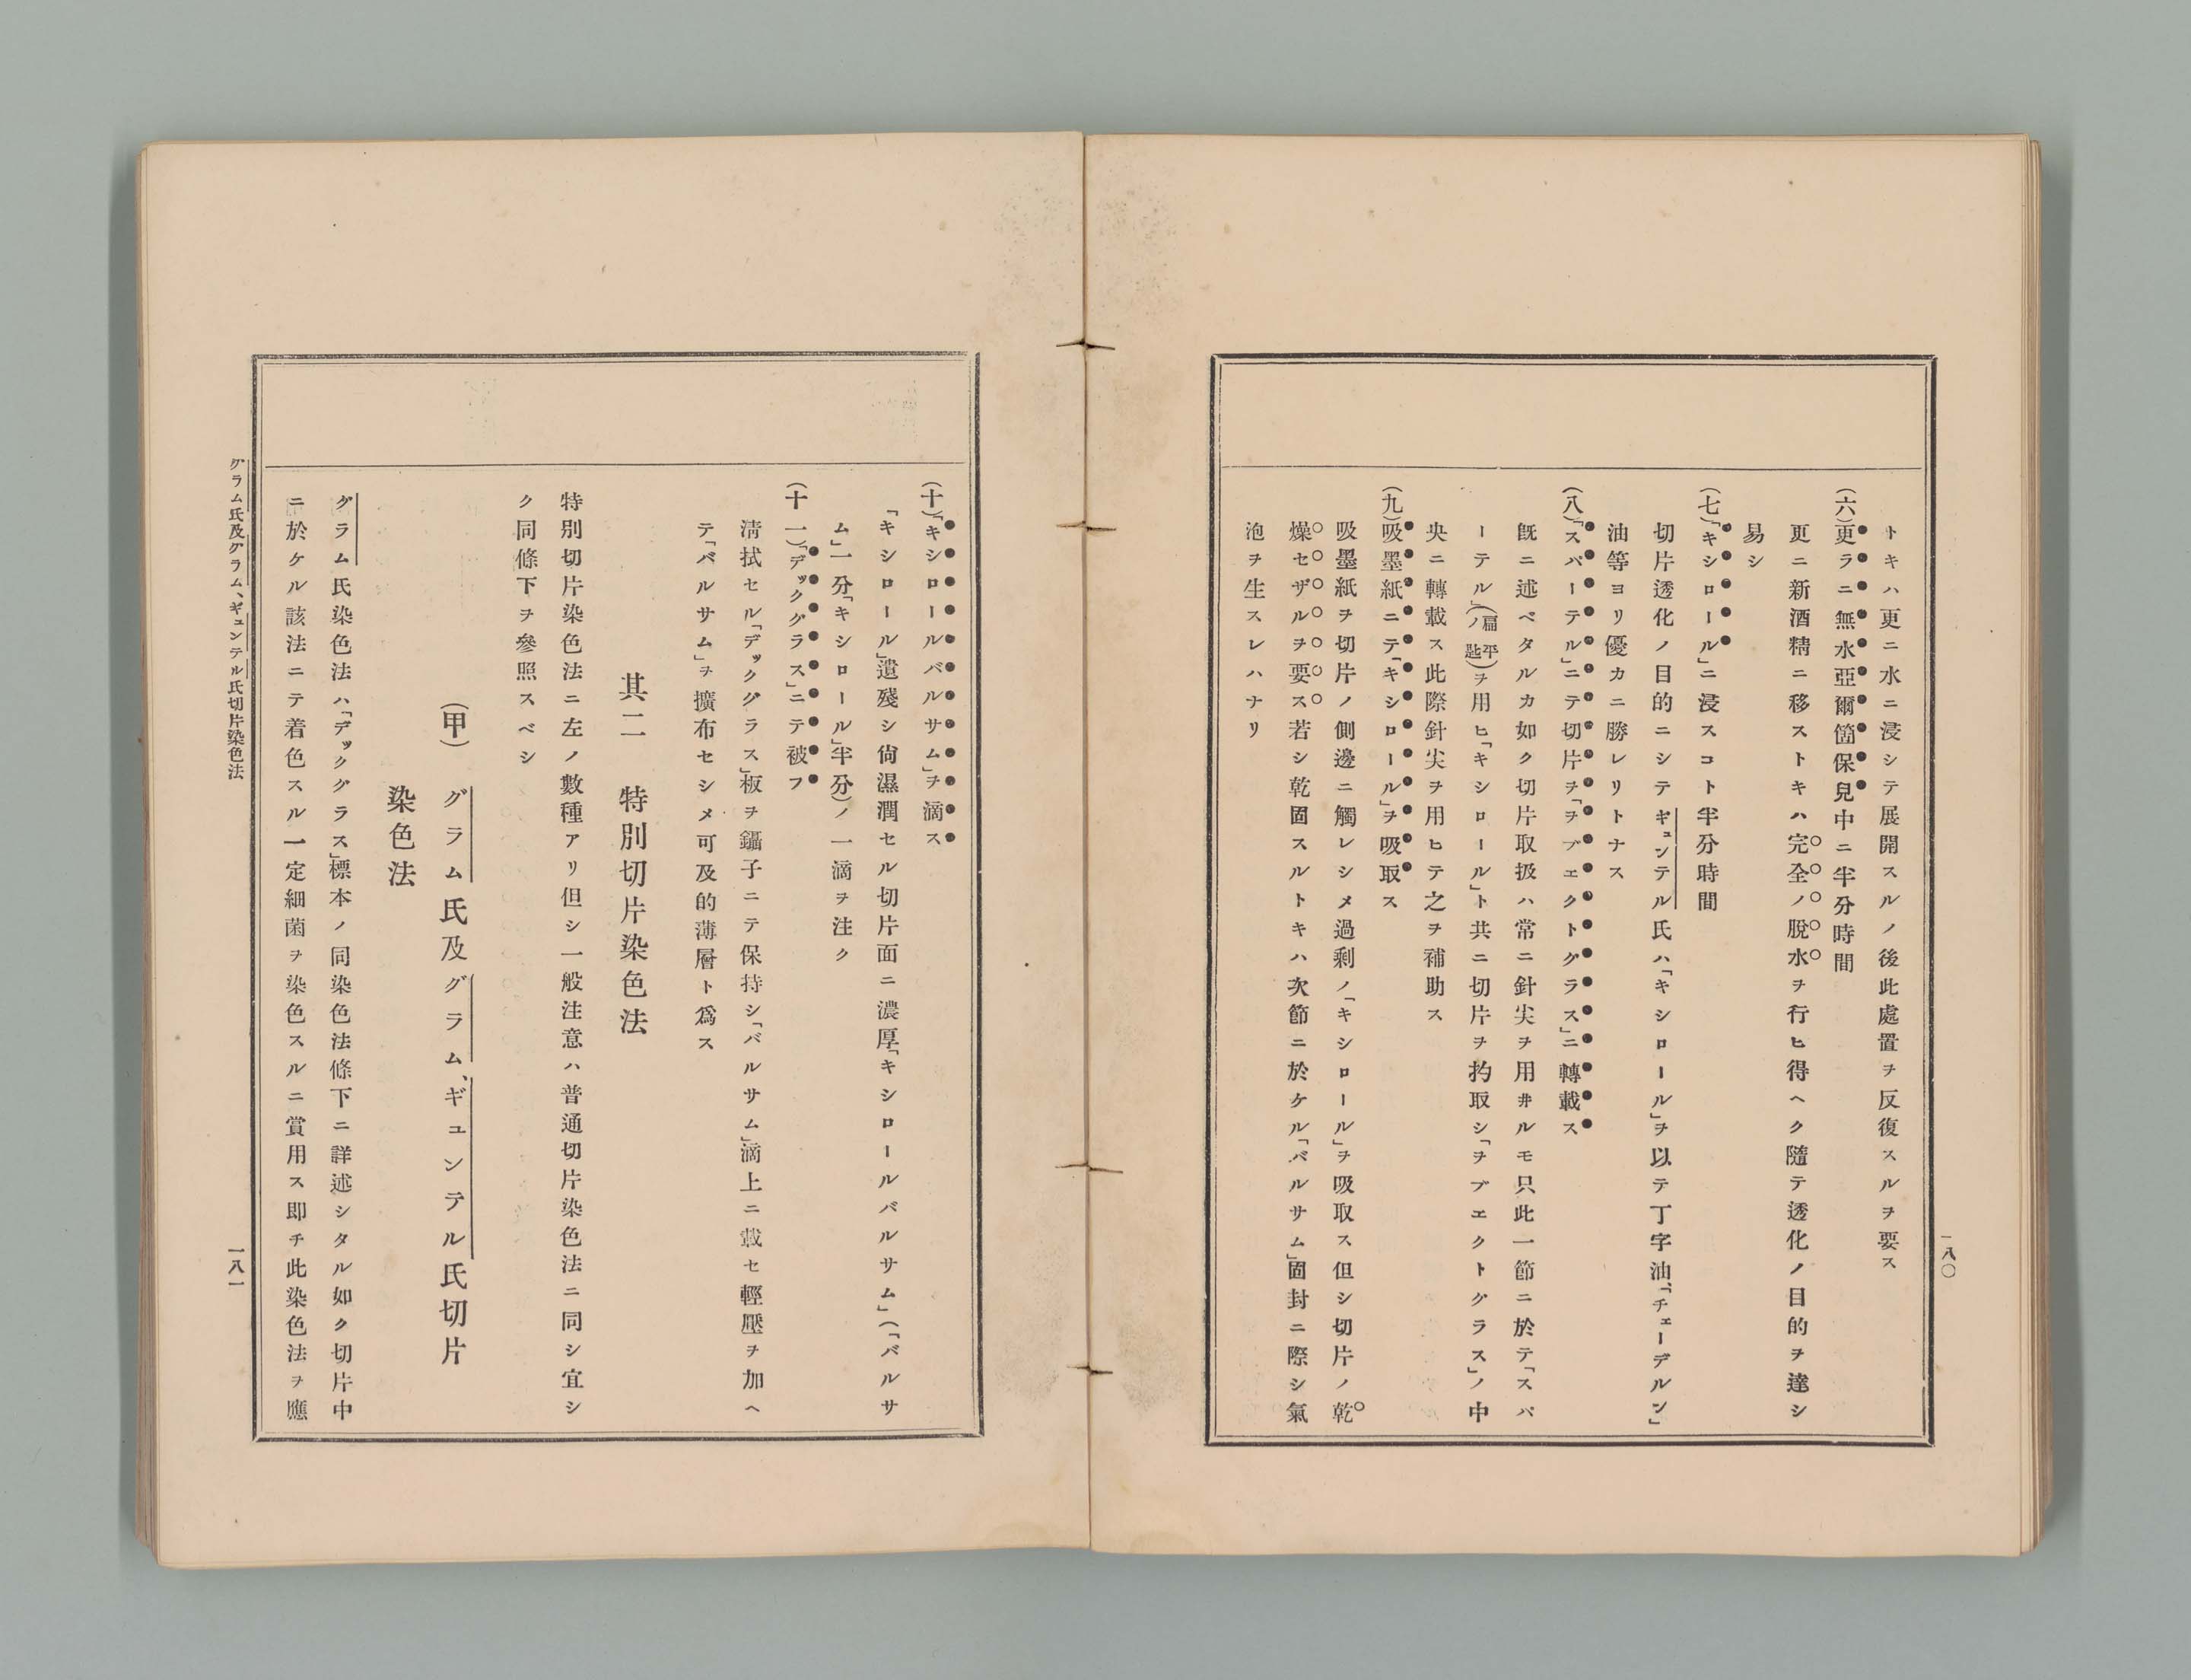 トキハ更ニ水ニ浸シテ展開スルノ後此處置ヲ反復スルヲ要ス
(六)更ラニ無水亞爾箇保兒中ニ半分時間
更ニ新酒精ニ移ストキハ完全ノ脫水ヲ行ヒ得ヘク隨テ透化ノ目的ヲ達シ
易シ
(七)「キシロール」ニ浸スコト半分時間
切片透化ノ目的ニシテギュンテル氏ハ「キシロール」ヲ以テ丁字油、「チェーデルン」
油等ヨリ優カニ勝レリトナス
(八)「スパーテル」ニテ切片ヲ「ヲブエクトグラス」ニ轉載ス
旣ニ述べタルカ如ク切片取扱ハ常ニ針尖ヲ用井ルモ只此一節ニ於テ「スパ
ーテル」(扁平ノ匙)ヲ用ヒ「キシロール」ト共ニ切片ヲ抅取シ「ヲブエクトグラス」ノ中
央ニ轉載ス此際針尖ヲ用ヒテ之ヲ補助ス
(九)吸墨紙ニテ「キシロール」ヲ吸取ス
吸墨紙ヲ切片ノ側邊ニ觸レシメ過剩ノ「キシロール」ヲ吸取ス但シ切片ノ乾
燥セザルヲ要ス若シ乾固スルトキハ次節ニ於ケル「バルサム」固封ニ際シ氣
泡ヲ生スレハナリ
一八〇
(十)「キシロールバルサム」ヲ滴ス
「キシロール」遺殘シ尙濕潤セル切片面ニ濃厚「キシロールバルサム」(「バルサ
ム」一分「キシロール」半分)ノ一滴ヲ注ク
(十一)「デックグラス」ニテ被フ
淸拭セル「デックグラス」板ヲ鑷子ニテ保持シ「バルサム」滴上ニ載セ輕壓ヲ加ヘ
テ「バルサム」ヲ擴布セシメ可及的薄層ト爲ス
其二　特別切片染色法
特別切片染色法ニ左ノ數種アリ但シ一般注意ハ普通切片染色法ニ同シ宜シ
ク同條下ヲ參照スベシ
(甲)　グラム氏及グラム、ギュンテル氏切片
染色法
グラム氏染色法ハ「デックグラス」標本ノ同染色法條下ニ詳述シタル如ク切片中
ニ於ケル該法ニテ着色スル一定細菌ヲ染色スルニ賞用ス卽チ此染色法ヲ應
グラム氏及グラム、ギュンテル氏切片染色法
一八一